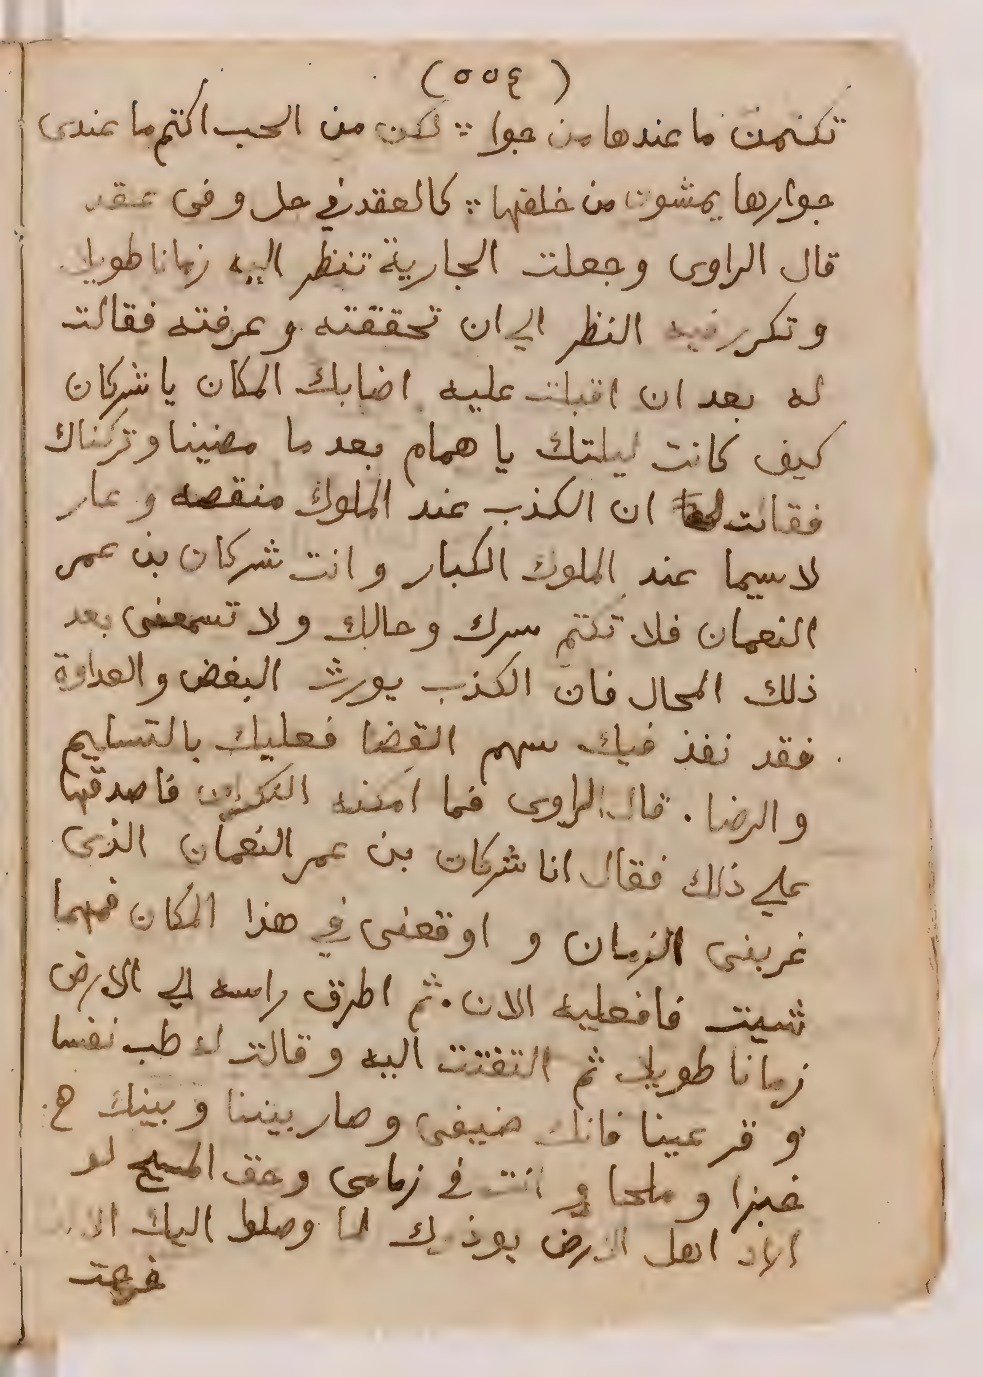 (٥٥٤)
تكتمن ما عندها من جوا ؞ لكن من الحب اكتم ما عندى
جوارها يمشون من خلفها ؞ كالعقد في حل وفى عقد
قال الراوى وجعلت الجارية تنظر اليه زمانا طويلا
وتكرر فيه النظر الي ان تحققته وعرفته فقالت
له بعد ان اقبلت عليه اضابك المكان يا شركان
كيف كانت ليلتك يا همام بعد ما مضينا وتركناك
فقالت ان الكذب عند الملوك منقصه وعار
لا سيما عند الملوك الكبار وانت شركان بن عمر
النعمان فلا تكتم سرك وحالك ولا تسمعنى بعد
ذلك المحال فان الكذب يورث البغض والعداوة
فقد نفذ فيك سهم القضا فعليك بالتسليم
والرضا . قال الراوى فما امكنه النكران فاصدقها
علي ذلك فقال انا شركان بن عمر النعمان الذى
غربنى الزمان و اوقعنى في هذا المكان فمهما
شيت فافعليه الان . ثم اطرق راسه الي الارض
زمانا طويلا ثم التفتت اليه وقالت له طب نفسا
و قر عينا فانك ضيفى وصار بيننا وبينك ح
خبزا و ملحا و انت في زمامى وحق المسيح لو
اراد اهل الارض يوذيك لما وصلوا اليك الا
فرجت